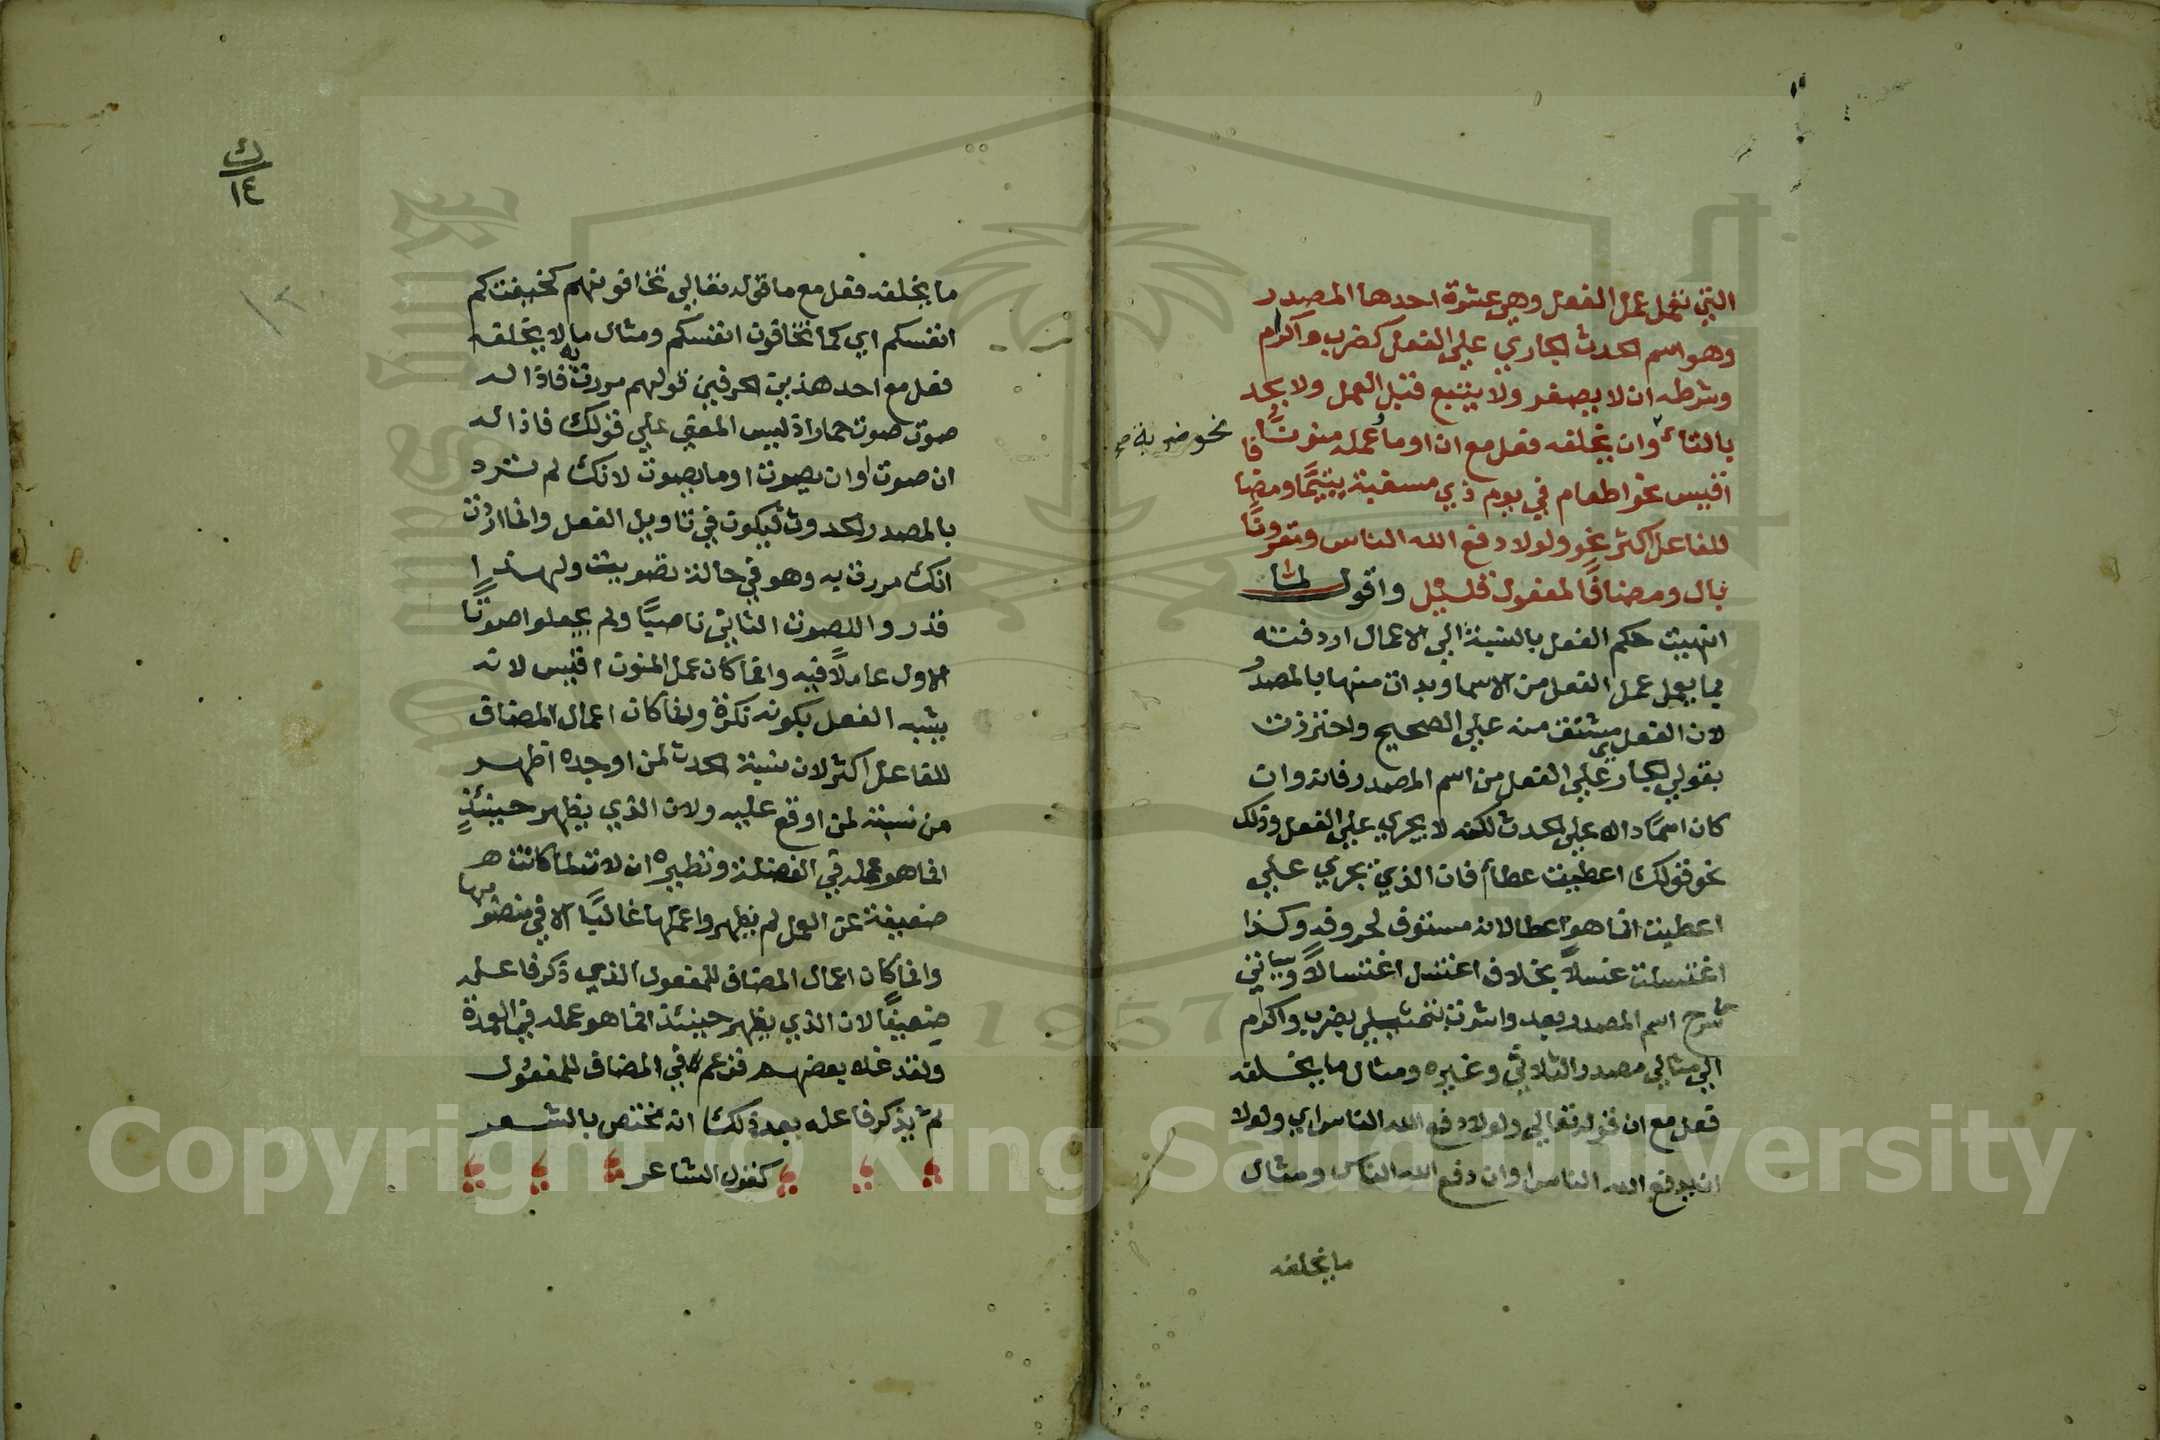 التي تعمل عمل الفعل وهي عشرة احدها المصدر
وهو اسم الحدث الجاري علي الفعل كضرب واكرام
وشرطه ان لا يصغر ولا يتبع قبل العمل ولا يحد
بالتاء وان يخلفه فعل مع ان او ما وعمله منونًا
نحو ضربة صح
فا
اقيس نحو اطعام في يوم ذي مسغبة يتيمًا ومضا
للفاعل اكثر نحو ولولا دفع الله الناس ومقرونًا
بال ومضافًا لمفعول قليل واقول لما
انهيت حكم الفعل بالنسبة الي الاعمال اردفته
بما يعمل عمل الفعل من الاسما وبدات منها بالمصدر
لان الفعل مشتق منه علي الصحيح واحترزت
بقولي الجاري علي الفعل من اسم المصدر فانه وان
كان اسمًا دالا علي الحدث لكنه لا يجري علي الفعل وذلك
نحو قولك اعطيت عطاء فان الذي يجري علي
اعطيت انما هو اعطا لانه مستوف لحروفه وكذا
اغتسلت غسلاً بخلاف اغتسل اغتسالاً وسياتي
شرح اسم المصدر بعد واشرت بتمثيلي بضرب واكرام
الي مثالي مصدر الثلاثي وغيره ومثال ما يخلفه
فعل مع ان قوله تعالي ولولا دفع الله الناس اي ولولا
ان يدفع الله الناس او ان دفع الله الناس ومثال
ما يخلفه
ك
١٤
ما يخلفه فعل مع ما قوله تعالي تخافونهم كخيفتكم
انفسكم اي كما تخافون انفسكم ومثال ما لا يخلفه
فعل مع احد هذين الحرفين قولهم مررت به فاذا له
صوت صوت حمار اذ ليس المعني علي قولك فاذا له
ان صوت او ان يصوت او ما يصوت لانك لم ترد
بالمصدر الحدوث ليكون في تاويل الفعل وانما اردت
انك مررت به وهو في حالة تصويت ولهذا
قدروا للصوت الثاني ناصبًا ولم يجعلوا صوتًا
الاول عاملاً فيه وانما كان عمل المنون اقيس لانه
يشبه الفعل بكونه نكرة وانما كان اعمال المضاف
للفاعل اكثر لان نسبة الحدث لمن اوجده اظهر
من نسبته لمن اوقع عليه ولان الذي يظهر حينئذٍ
انما هو عمله في الفضلة ونظيره ان لات لما كانت
ضعيفة عن العمل لم يظهروا عملها غالبًا الا في منصوبها
وانما كان اعمال المضاف للمفعول الذي ذكر فاعله
ضعيفًا لان الذي يظهر حينئذ انما هو عمله في العمدة
ولقد غلا بعضهم فزعم في المضاف للمفعول
ثم يذكر فاعله بعد ذلك انه مختص بالشعر
كقول الشاعر
Copyright © King Saud University
1957